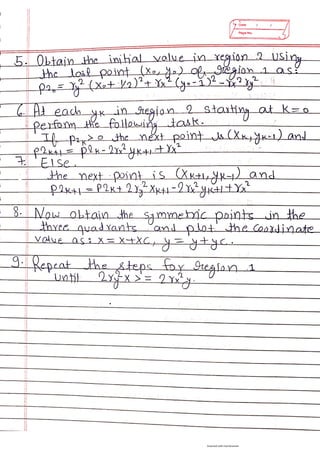 5. Obtain the initial value in region 2 using
the last point (x₀, y₀) of region 1 as:
p2₀ = ry² (x₀ + 1/2)² + rx² (y₀ - 1)² - rx² ry²
6. At each yK in region 2 starting at K = 0
perform the following task.
If p2K > 0 the next point is (xK, yK-1) and
p2K+1 = p2K - 2rx² yK+1 + rx²
7. Else,
the next point is (xK+1, yK-1) and
p2K+1 = p2K + 2ry² xK+1 - 2rx² yK+1 + rx²
8. Now obtain the symmetric points in the
three quadrants and plot the coordinate
value as: x = x + xc, y = y + yc.
9. Repeat the steps for region 1
until 2ry² x >= 2rx² y.